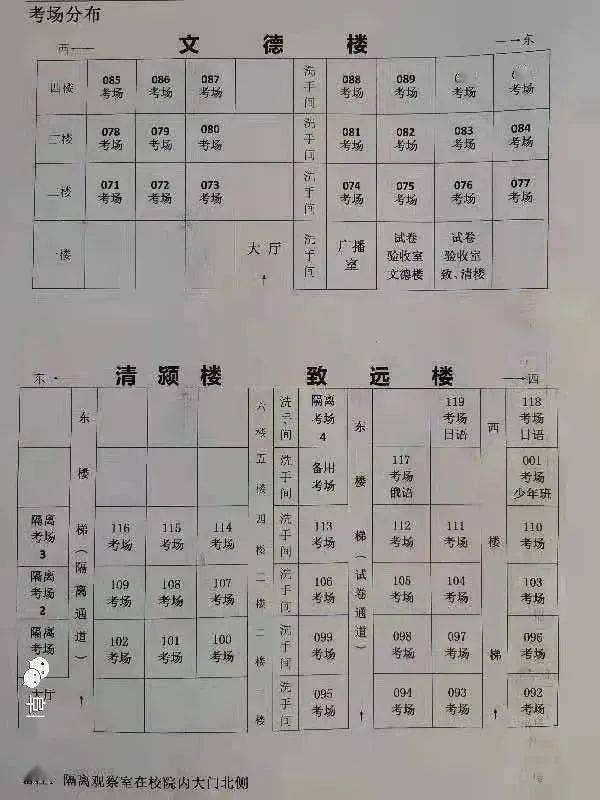 考场分布
西 文德楼 东
四楼 085 086 087 洗手间 088 089
考场 考场 考场 考场 考场 考场 考场
三楼 078 079 080 洗手间 081 082 083 084
考场 考场 考场 考场 考场 考场 考场
二楼 071 072 073 洗手间 074 075 076 077
考场 考场 考场 考场 考场 考场 考场
楼 大厅 洗手间 广播室 试卷验收室文德楼 试卷验收室致、清楼
东 清颍楼 致远楼 西
东楼梯（隔离通道） 六楼 洗手间 隔离考场4 东楼梯（试卷通道） 119考场日语 西楼梯 118考场日语
五楼 洗手间 备用考场 117考场俄语 001考场少年班
隔离考场3 116考场 115考场 114考场 四楼 洗手间 113考场 112考场 111考场 110考场
隔离考场2 109考场 108考场 107考场 楼 洗手间 106考场 105考场 104考场 103考场
隔离考场 102考场 101考场 100考场 二楼 洗手间 099考场 098考场 097考场 096考场
大厅 楼 洗手间 095考场 094考场 093考场 092考场
隔离观察室在校院内大门北侧